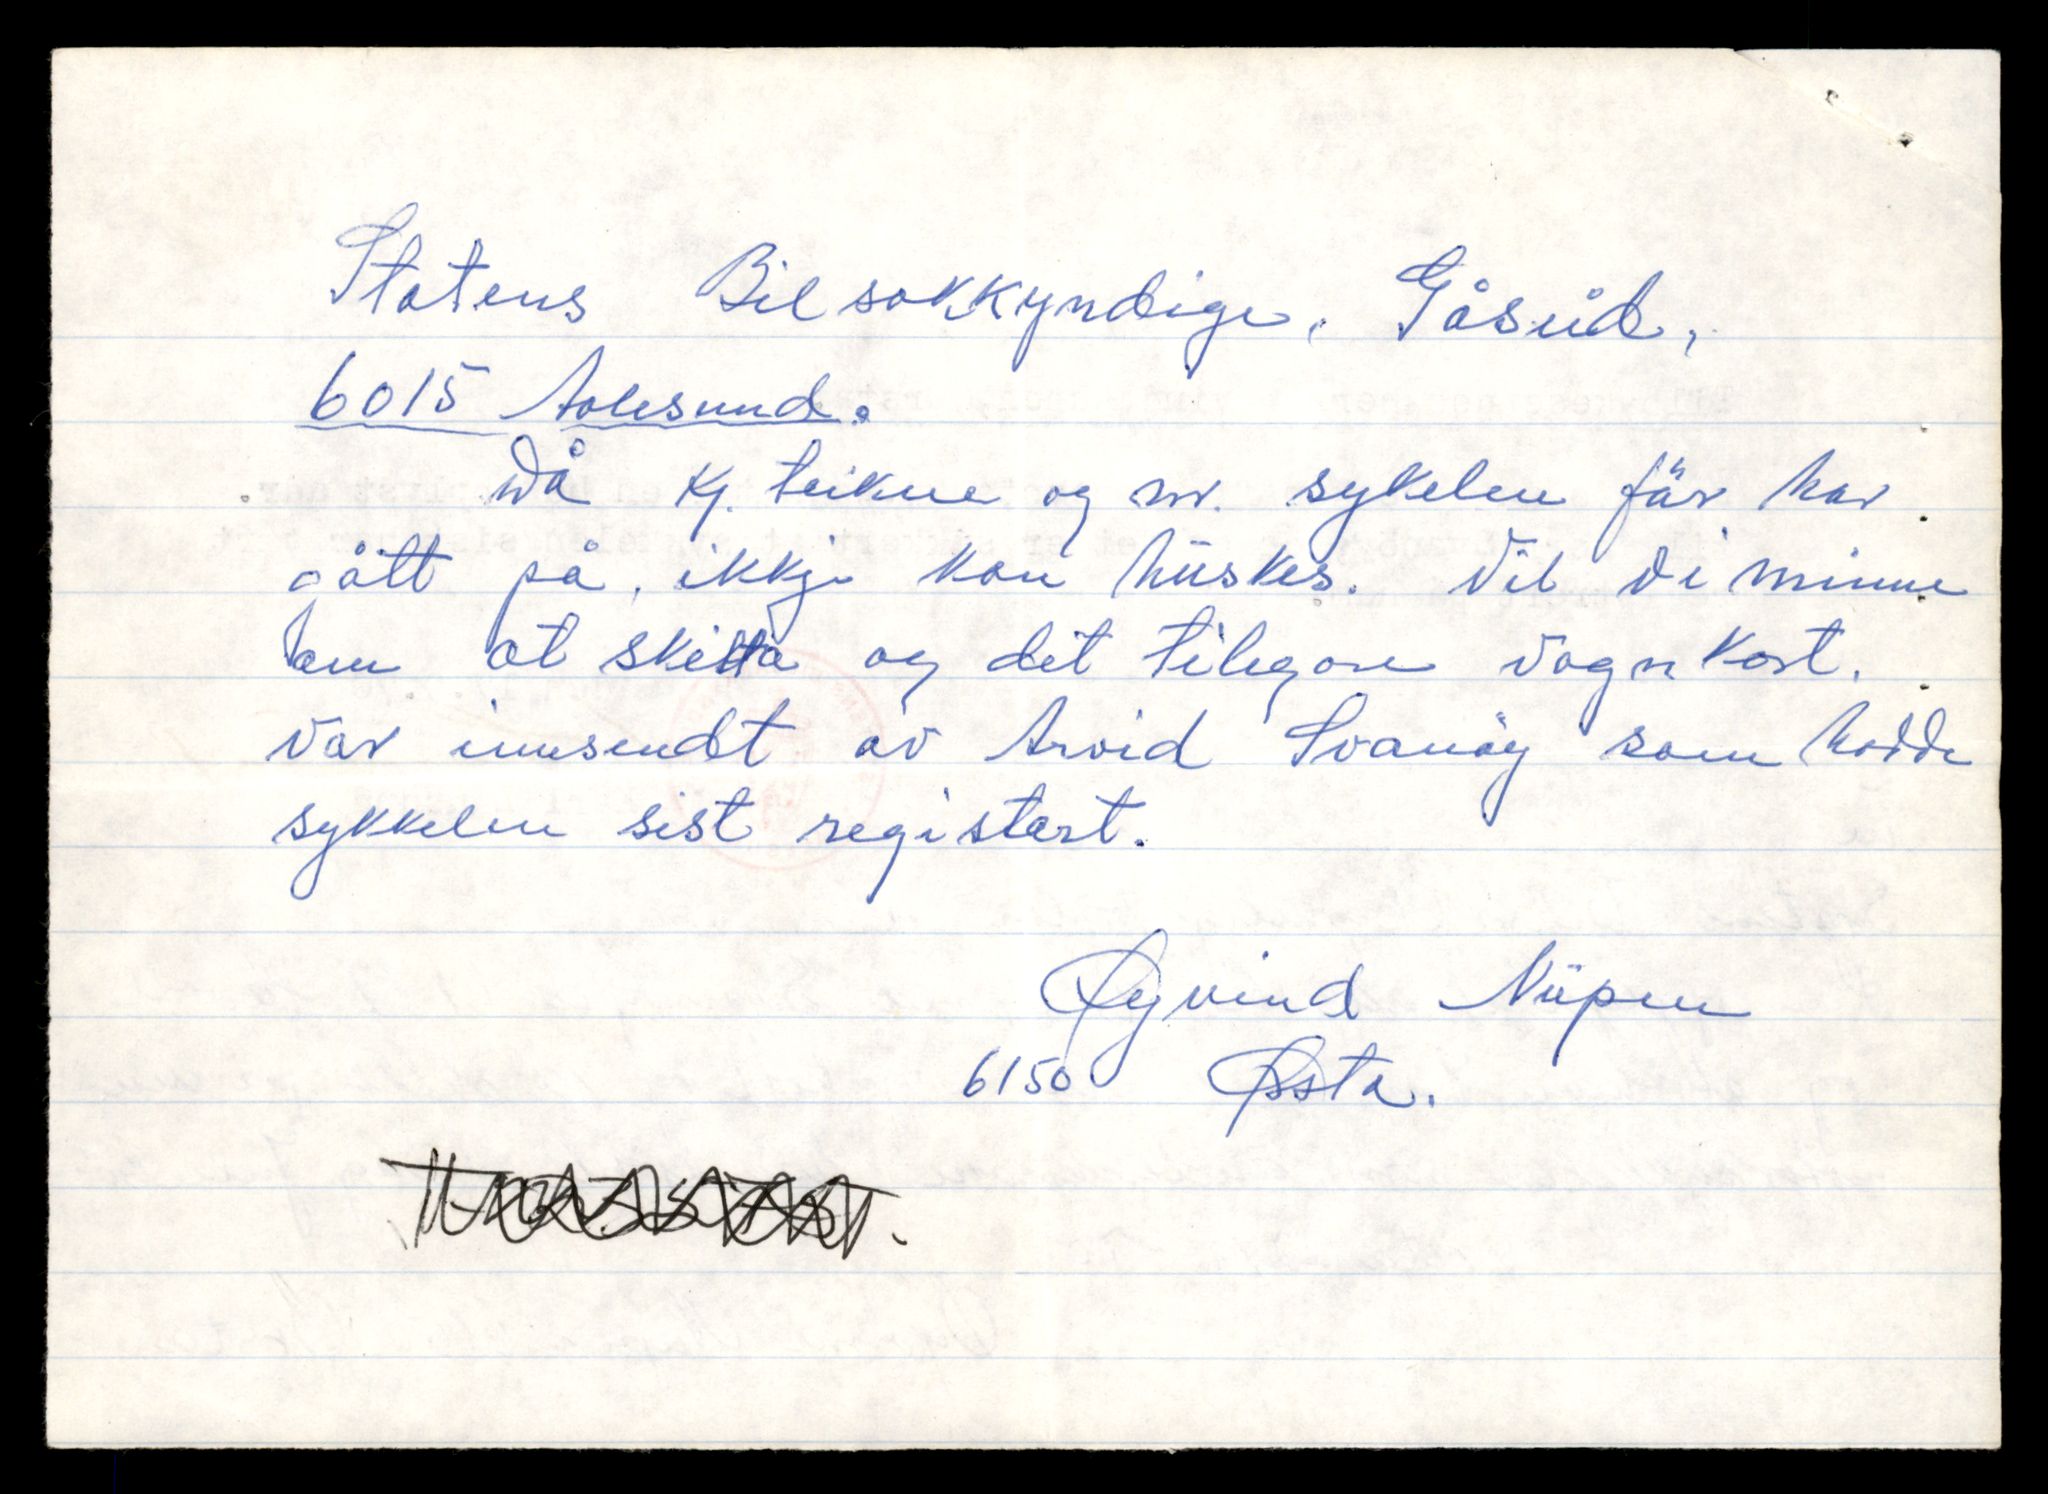 Statens Bilsakkyndige, Gåseid,
6015 Aalesund.
Då Kj. teikne og nr. sykelen før har
gått på, ikkje kan huskes. Vil vi minne
om at skilta og det tilegare vognkort.
var innsendt av Arvid Svanöy som hadde
sykkelen sist registert.
Øyvind Nupen
6150 Ørsta.